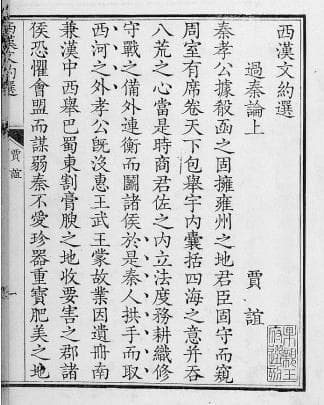 西漢文約選
過秦論上　賈誼
秦孝公據殽函之固擁雍州之地君臣固守而窺
周室有席卷天下包舉宇内囊括四海之意并吞
八荒之心當是時商君佐之内立法度務耕織修
守戰之備外連衡而鬭諸侯於是秦人拱手而取
西河之外孝公旣沒惠王武王蒙故業因遺冊南
兼漢中西舉巴蜀東割膏腴之地收要害之郡諸
侯恐懼會盟而謀弱秦不愛珍器重寶肥美之地
西漢文約選　賈誼　一